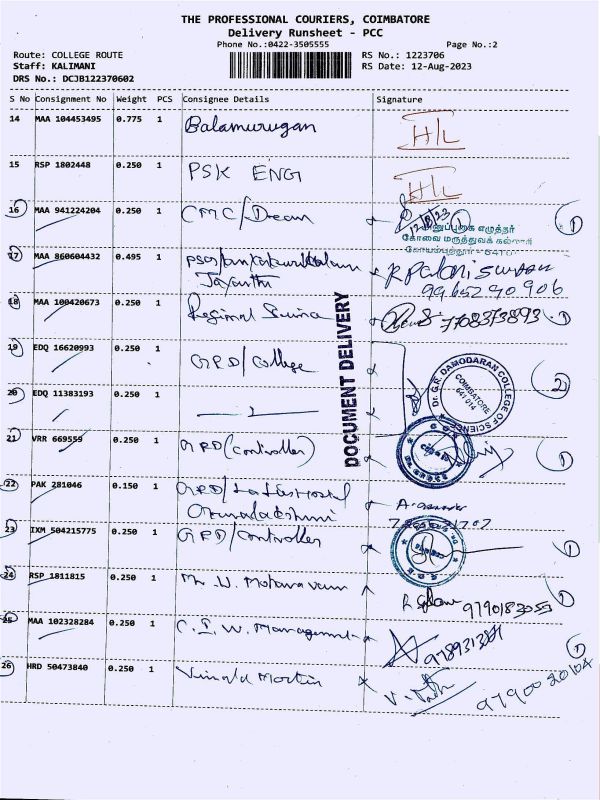 THE PROFESSIONAL COURIERS, COIMBATORE
Delivery Runsheet - PCC
Phone No.:0422-3505555
Page No.:2
Route: COLLEGE ROUTE
RS No.: 1223706
Staff: KALIMANI
RS Date: 12-Aug-2023
DRS No.: DCJB122370602
S No Consignment No Weight PCS Consignee Details Signature
14 MAA 104453495 0.775 1 Balamurugan H/L
15 RSP 1802448 0.250 1 PSK ENG H/L
16 MAA 941224204 0.250 1 CMC/Dean 12/8/23 1
கோவை மருத்துவக்
17 MAA 860604432 0.495 1 Jayanthi R Palaniswamy
9965290906
18 MAA 100420673 0.250 1 Regional 7708373893 1
DOCUMENT DELIVERY
19 EDQ 16620993 0.250 1 GRD/College
Dr. G.R. DAMODARAN COLLEGE OF SCIENCE
COIMBATORE
641 014
2
20 EDQ 11383193 0.250 1
21 VRR 669559 0.250 1 GRD(Controller) 1
22 PAK 281046 0.150 1 GRD/Ladies Hostel
23 IXM 504215775 0.250 1 GRD/Controller 1
24 RSP 1811815 0.250 1 Mr. 9790183055 1
25 MAA 102328284 0.250 1 Management 1
26 HRD 50473840 0.250 1 Vimala Martin 9790020104